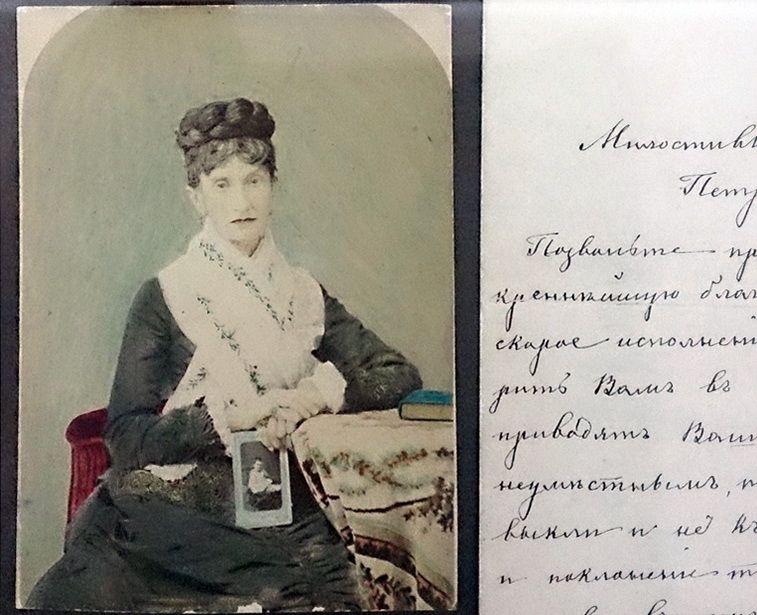 Милостивы
Петр
Позвольте пр
креннѣйшую благ
скорое исполнені
рить Вамъ въ
приводятъ Ваш
неумѣстнымъ, п
выкли и не къ
и поклоненіе т